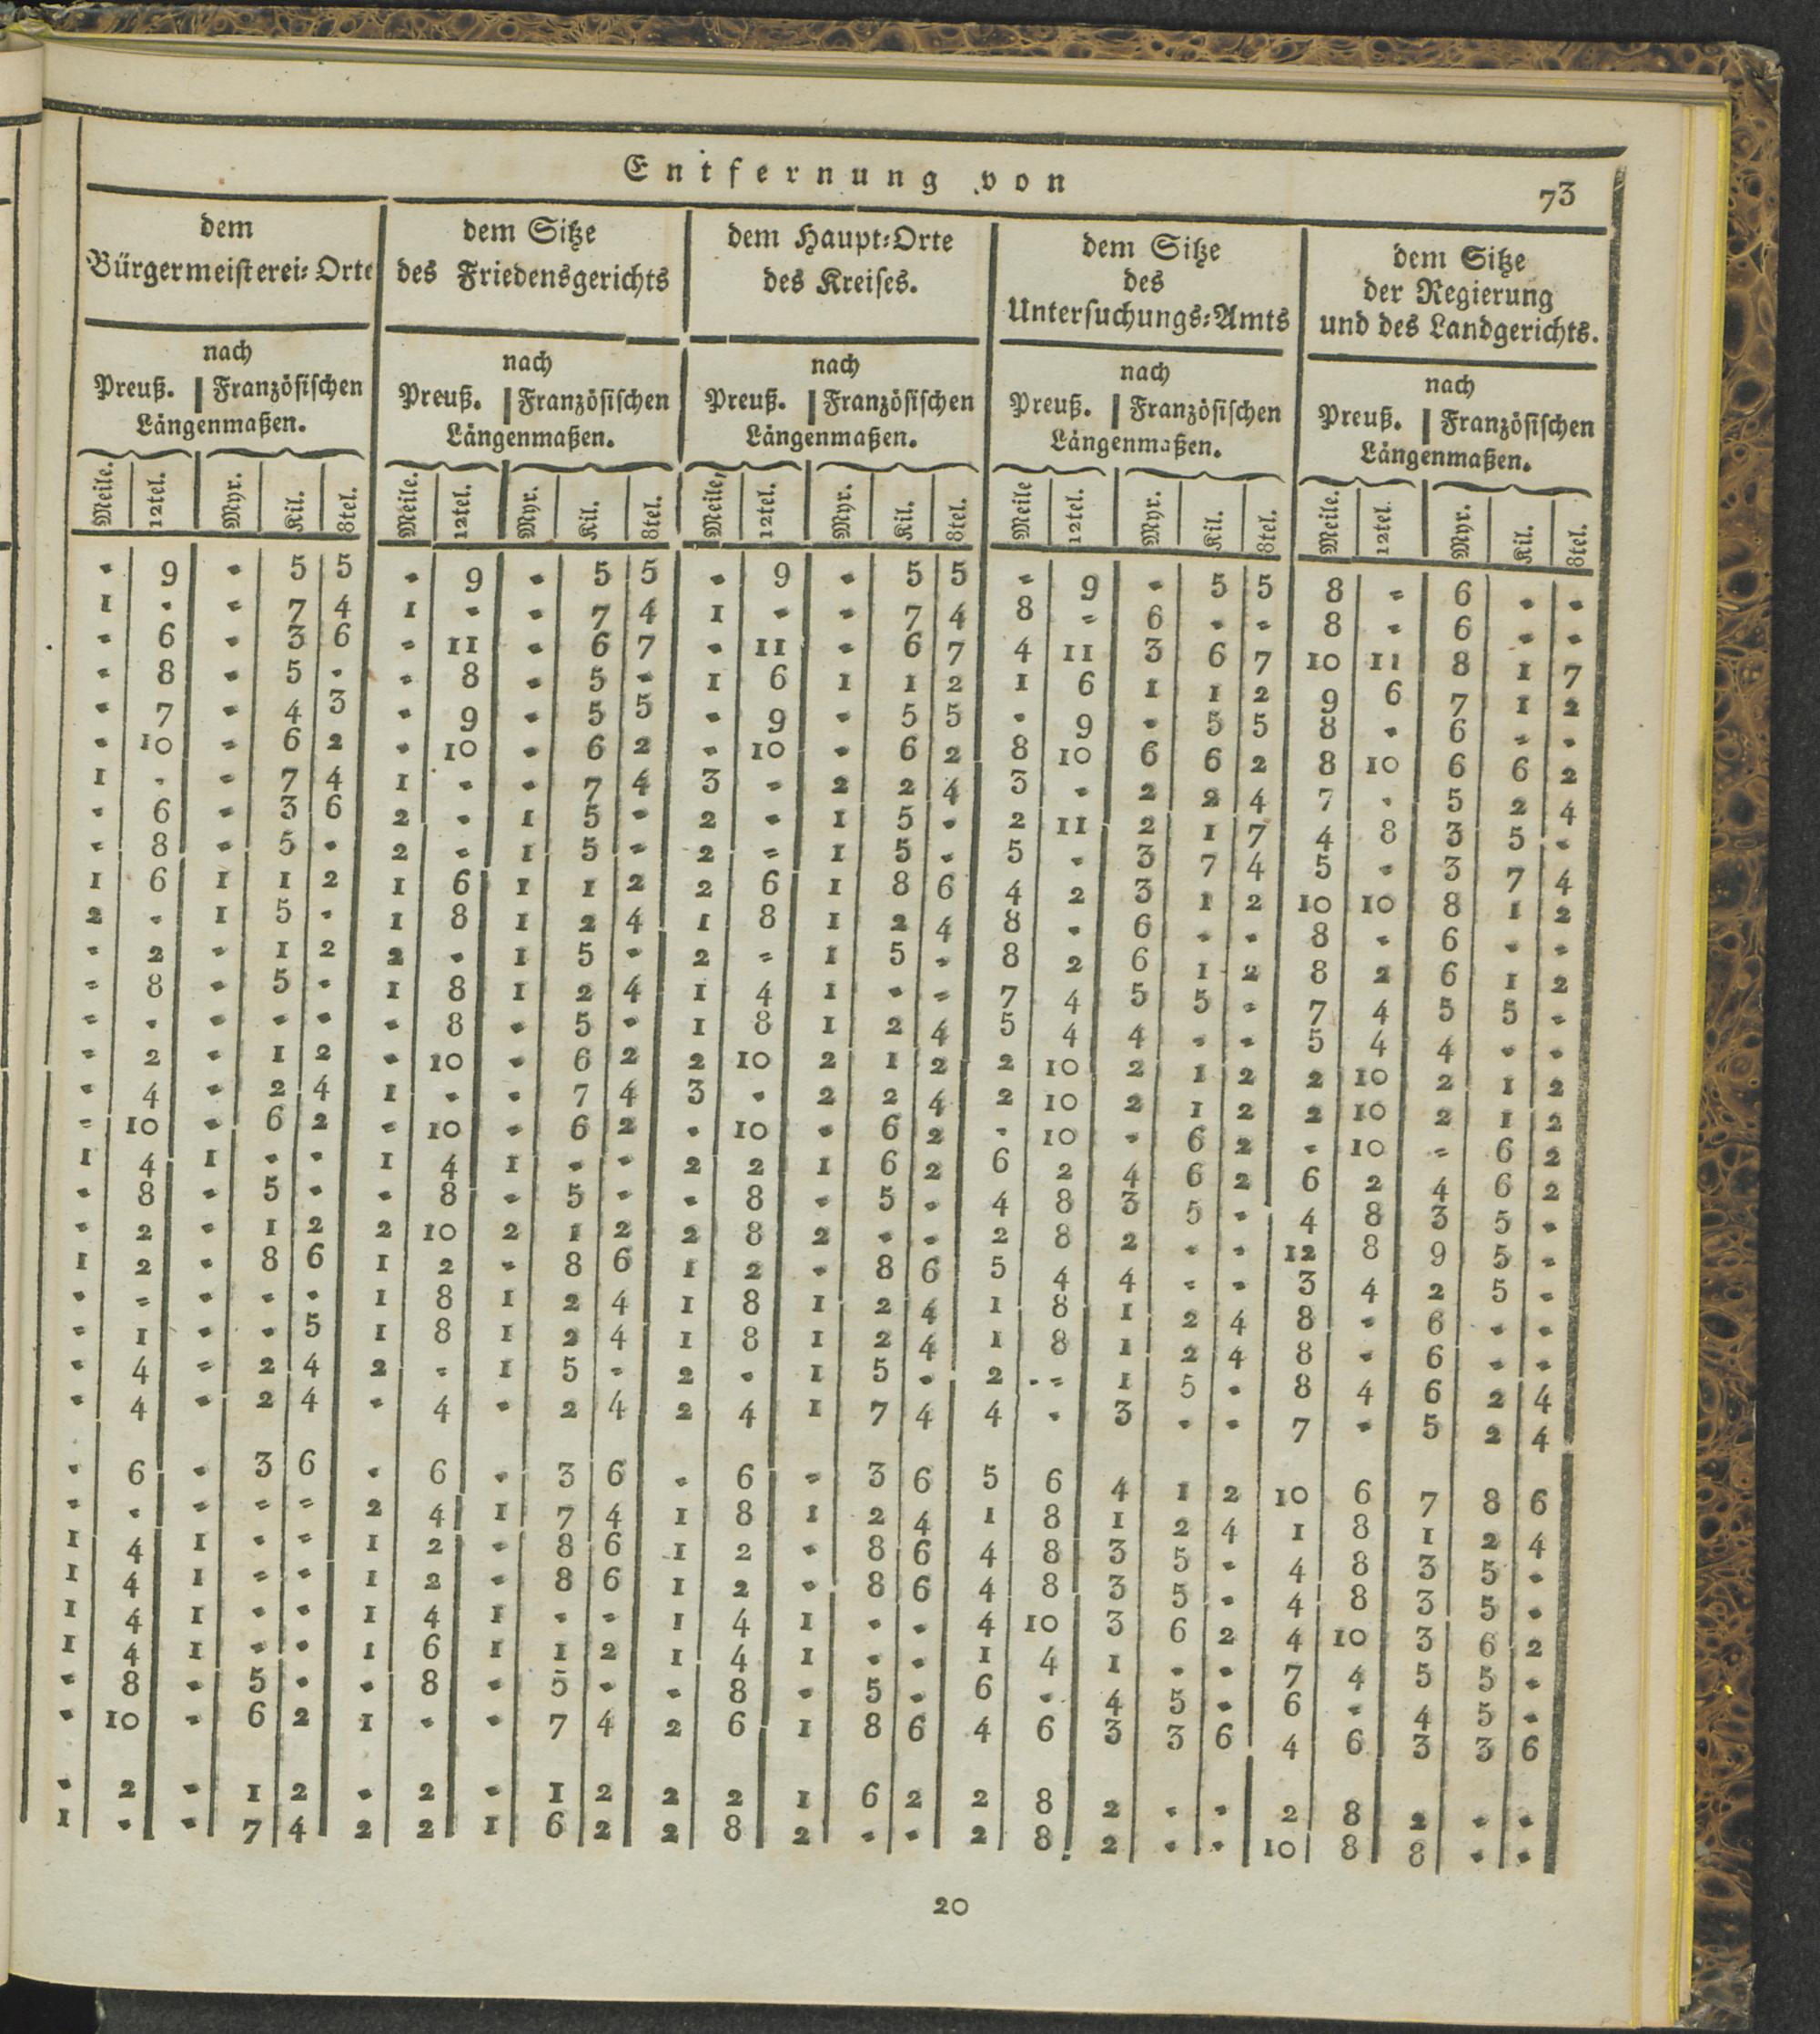 Entfernung von
73
dem Bürgermeisterei-Orte | dem Sitze des Friedensgerichts | dem Haupt-Orte des Kreises. | dem Sitze des Untersuchungs-Amts | dem Sitze der Regierung und des Landgerichts.
nach | nach | nach | nach | nach
Preuß. | Französischen | Preuß. | Französischen | Preuß. | Französischen | Preuß. | Französischen | Preuß. | Französischen
Längenmaßen. | Längenmaßen. | Längenmaßen. | Längenmaßen. | Längenmaßen.
Meile. 12tel. Myr. Kil. 8tel. | Meile. 12tel. Myr. Kil. 8tel. | Meile. 12tel. Myr. Kil. 8tel. | Meile 12tel. Myr. Kil. 8tel. | Meile. 12tel. Myr. Kil. 8tel.
= 9 = 5 5 | = 9 = 5 5 | = 9 = 5 5 | = 9 = 5 5 | 8 = 6 = =
1 = = 7 4 | 1 = = 7 4 | 1 = = 7 4 | 8 = 6 = = | 8 = 6 = =
= 6 = 3 6 | = 11 = 6 7 | = 11 = 6 7 | 4 11 3 6 7 | 10 11 8 1 7
= 8 = 5 = | = 8 = 5 = | 1 6 1 1 2 | 1 6 1 1 2 | 9 6 7 1 2
= 7 = 4 3 | = 9 = 5 5 | = 9 = 5 5 | = 9 = 5 5 | 8 = 6 = =
= 10 = 6 2 | = 10 = 6 2 | = 10 = 6 2 | 8 10 6 6 2 | 8 10 6 6 2
1 = = 7 4 | 1 = = 7 4 | 3 = 2 2 4 | 3 = 2 2 4 | 7 = 5 2 4
= 6 = 3 6 | 2 = 1 5 = | 2 = 1 5 = | 2 11 2 1 7 | 4 8 3 5 =
= 8 = 5 = | 2 = 1 5 = | 2 = 1 5 = | 5 = 3 7 4 | 5 = 3 7 4
1 6 1 1 2 | 1 6 1 1 2 | 2 6 1 8 6 | 4 2 3 1 2 | 10 10 8 1 2
2 = 1 5 = | 1 8 1 2 4 | 1 8 1 2 4 | 8 = 6 = = | 8 = 6 = =
= 2 = 1 2 | 2 = 1 5 = | 2 = 1 5 = | 8 2 6 1 2 | 8 2 6 1 2
= 8 = 5 = | 1 8 1 2 4 | 1 4 1 = = | 7 4 5 5 = | 7 4 5 5 =
= = = = = | = 8 = 5 = | 1 8 1 2 4 | 5 4 4 = = | 5 4 4 = =
= 2 = 1 2 | = 10 = 6 2 | 2 10 2 1 2 | 2 10 2 1 2 | 2 10 2 1 2
= 4 = 2 4 | 1 = = 7 4 | 3 = 2 2 4 | 2 10 2 1 2 | 2 10 2 1 2
= 10 = 6 2 | = 10 = 6 2 | = 10 = 6 2 | = 10 = 6 2 | = 10 = 6 2
1 4 1 = = | 1 4 1 = = | 2 2 1 6 2 | 6 2 4 6 2 | 6 2 4 6 2
= 8 = 5 = | = 8 = 5 = | = 8 = 5 = | 4 8 3 5 = | 4 8 3 5 =
= 2 = 1 2 | 2 10 2 1 2 | 2 8 2 = = | 2 8 2 = = | 12 8 9 5 =
1 2 = 8 6 | 1 2 = 8 6 | 1 2 = 8 6 | 5 4 4 = = | 3 4 2 5 =
= = = = = | 1 8 1 2 4 | 1 8 1 2 4 | 1 8 1 2 4 | 8 = 6 = =
= 1 = = 5 | 1 8 1 2 4 | 1 8 1 2 4 | 1 8 1 2 4 | 8 = 6 = =
= 4 = 2 4 | 2 = 1 5 = | 2 = 1 5 = | 2 = 1 5 = | 8 4 6 2 4
= 4 = 2 4 | = 4 = 2 4 | 2 4 1 7 4 | 4 = 3 = = | 7 = 5 2 4
= 6 = 3 6 | = 6 = 3 6 | = 6 = 3 6 | 5 6 4 1 2 | 10 6 7 8 6
= = = = = | 2 4 1 7 4 | 1 8 1 2 4 | 1 8 1 2 4 | 1 8 1 2 4
1 4 1 = = | 1 2 = 8 6 | 1 2 = 8 6 | 4 8 3 5 = | 4 8 3 5 =
1 4 1 = = | 1 2 = 8 6 | 1 2 = 8 6 | 4 8 3 5 = | 4 8 3 5 =
1 4 1 = = | 1 4 1 = = | 1 4 1 = = | 4 10 3 6 2 | 4 10 3 6 2
1 4 1 = = | 1 6 1 1 2 | 1 4 1 = = | 1 4 1 = = | 7 4 5 5 =
= 8 = 5 = | = 8 = 5 = | = 8 = 5 = | 6 = 4 5 = | 6 = 4 5 =
= 10 = 6 2 | 1 = = 7 4 | 2 6 1 8 6 | 4 6 3 3 6 | 4 6 3 3 6
= 2 = 1 2 | = 2 = 1 2 | 2 2 1 6 2 | 2 8 2 = = | 2 8 2 = =
1 = = 7 4 | 2 2 1 6 2 | 2 8 2 = = | 2 8 2 = = | 10 8 8 = =
20